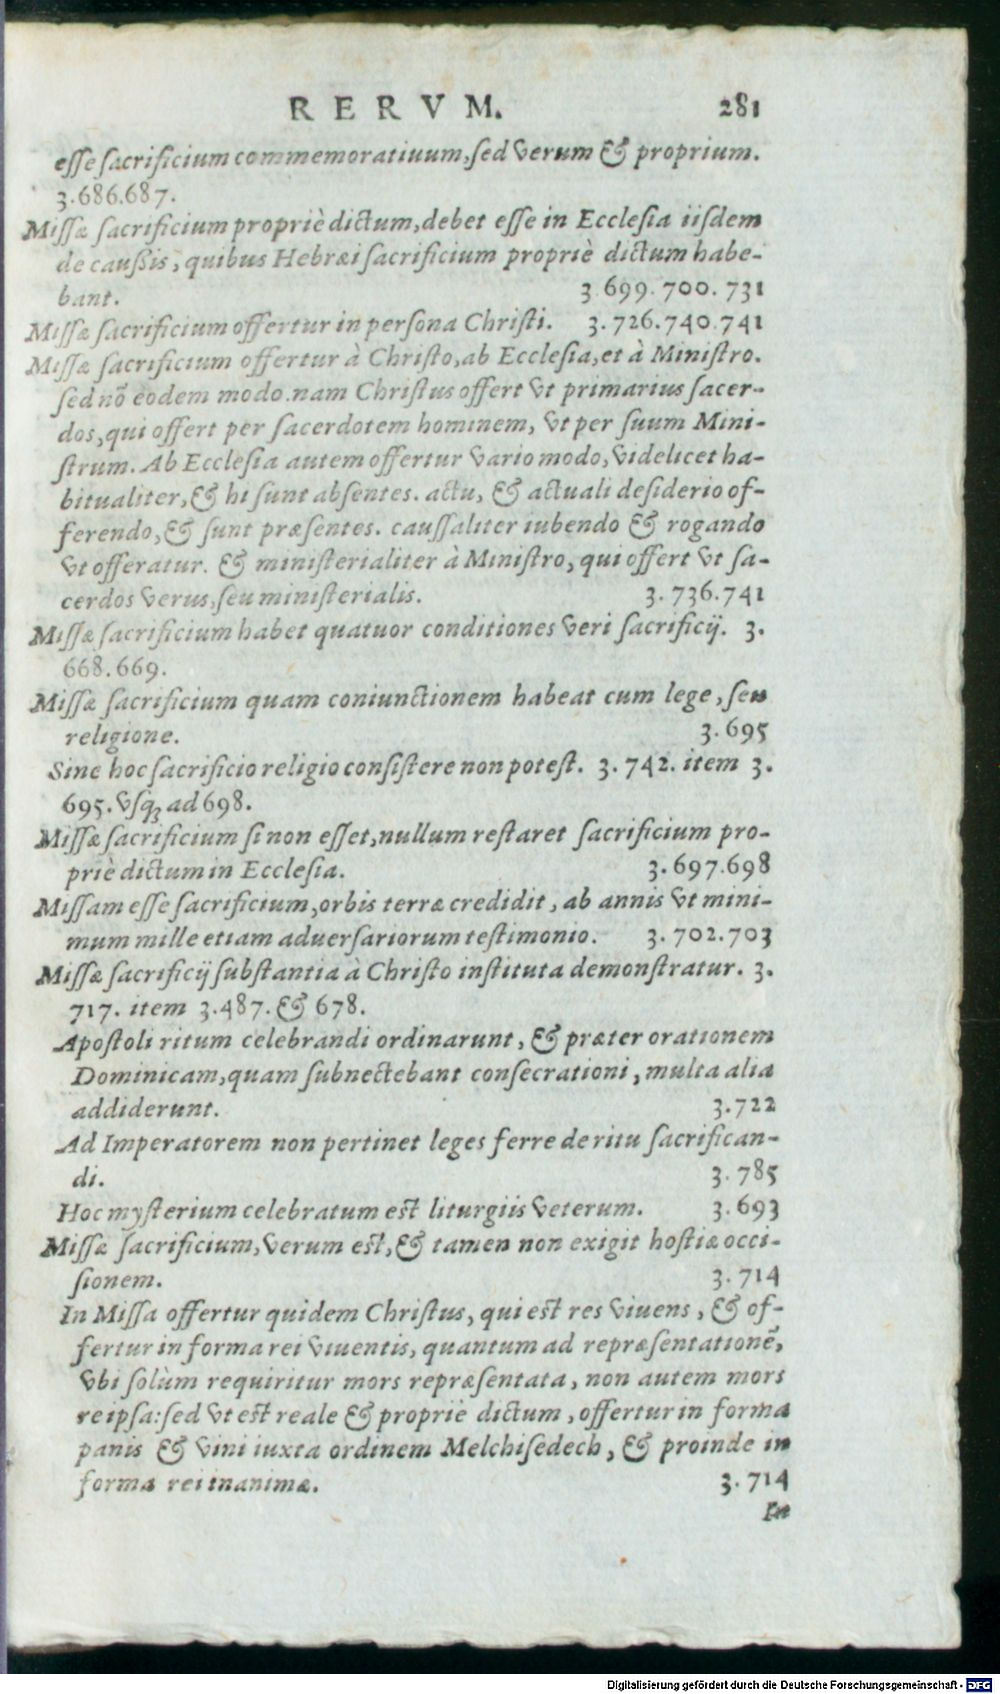 RERVM. 281
esse sacrificium commemoratiuum, sed verum & proprium.
3.686.687.
Missæ sacrificium propriè dictum, debet esse in Ecclesia iisdem
de caussis, quibus Hebræi sacrificium propriè dictum habe-
bant. 3.699.700.731
Missæ sacrificium offertur in persona Christi. 3.726.740.741
Missæ sacrificium offertur à Christo, ab Ecclesia, et à Ministro.
sed nõ eodem modo. nam Christus offert vt primarius sacer-
dos, qui offert per sacerdotem hominem, vt per suum Mini-
strum. Ab Ecclesia autem offertur vario modo, videlicet ha-
bitualiter, & hi sunt absentes. actu, & actuali desiderio of-
ferendo, & sunt præsentes. caussaliter iubendo & rogando
vt offeratur. & ministerialiter à Ministro, qui offert vt sa-
cerdos verus, seu ministerialis. 3.736.741
Missæ sacrificium habet quatuor conditiones veri sacrificij. 3.
668.669.
Missæ sacrificium quam coniunctionem habeat cum lege, seu
religione. 3.695
Sine hoc sacrificio religio consistere non potest. 3.742. item 3.
695. vsq; ad 698.
Missæ sacrificium si non esset, nullum restaret sacrificium pro-
priè dictum in Ecclesia. 3.697.698
Missam esse sacrificium, orbis terræ credidit, ab annis vt mini-
mum mille etiam aduersariorum testimonio. 3.702.703
Missæ sacrificij substantia à Christo instituta demonstratur. 3.
717. item 3.487. & 678.
Apostoli ritum celebrandi ordinarunt, & præter orationem
Dominicam, quam subnectebant consecrationi, multa alia
addiderunt. 3.722
Ad Imperatorem non pertinet leges ferre de ritu sacrifican-
di. 3.785
Hoc mysterium celebratum est liturgiis veterum. 3.693
Missæ sacrificium, verum est, & tamen non exigit hostiæ occi-
sionem. 3.714
In Missa offertur quidem Christus, qui est res viuens, & of-
fertur in forma rei viuentis, quantum ad repræsentationẽ,
vbi solùm requiritur mors repræsentata, non autem mors
reipsa: sed vt est reale & propriè dictum, offertur in forma
panis & vini iuxta ordinem Melchisedech, & proinde in
forma rei inanimæ. 3.714
In
Digitalisierung gefördert durch die Deutsche Forschungsgemeinschaft - DFG